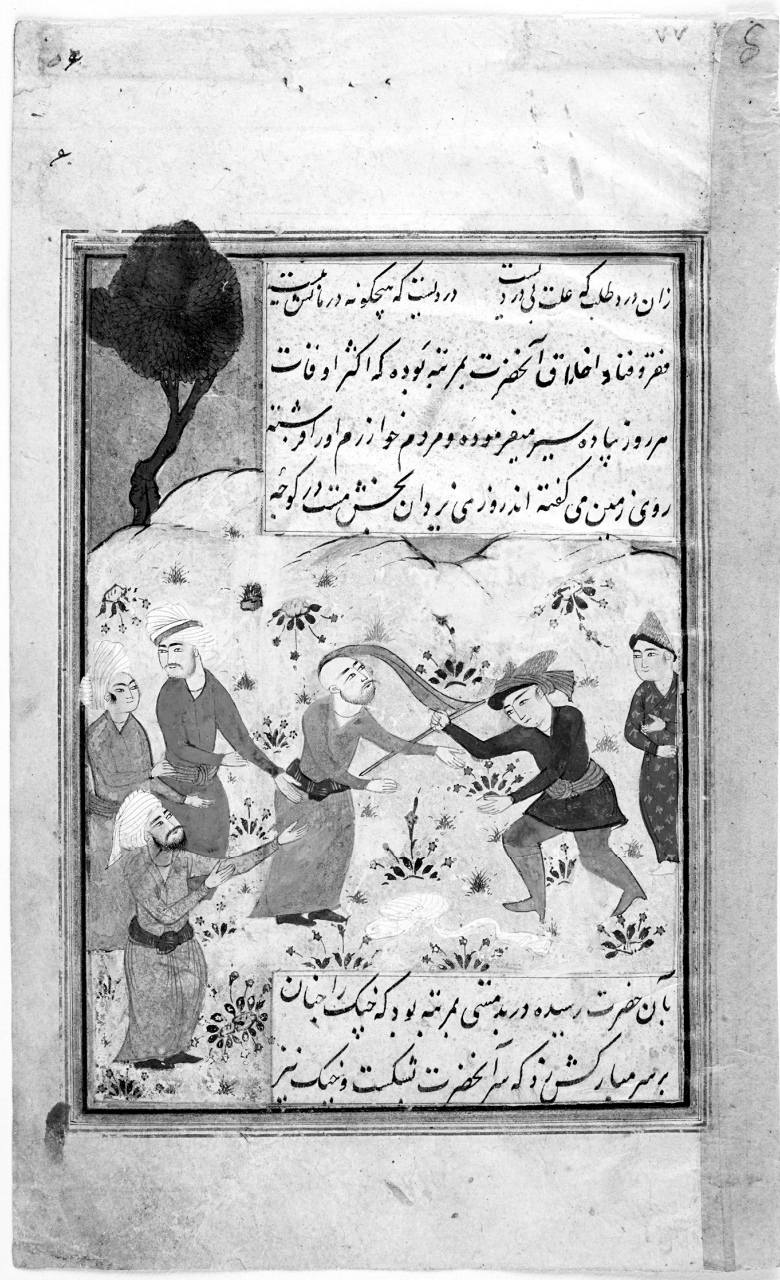 ۷۷
زان درد طلب که علت بی دردیست دردیست که هیچگونه درمانش نیست
فقر و فنا و اخلاق آنحضرت بمرتبه بوده که اکثر اوقات
هر روز پیاده سیر میفرموده و مردم خوارزم اورا فرشته
روی زمین می گفته اند روزی یزدان بخش مست در کوچه
بآن حضرت رسیده در بدمستی بمرتبه بود که خچک را چنان
بر سر مبارکش زد که سر آنحضرت شکست و خچک نیز